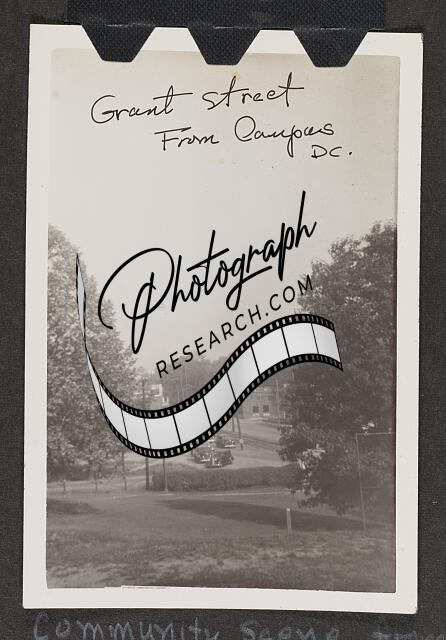 Grant Street
From Campus
DC.
Photograph
RESEARCH.COM
Community Scene